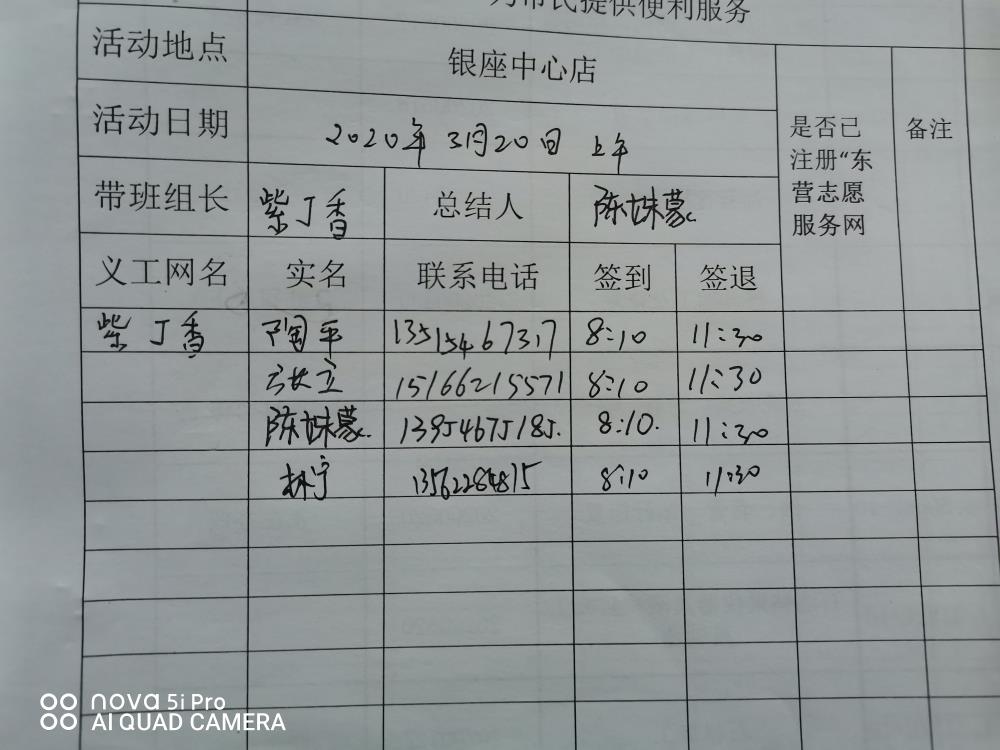 为市民提供便利服务
活动地点 银座中心店
活动日期 2020年3月20日 上午
是否已注册“东营志愿服务网
备注
带班组长 紫丁香 总结人 陈姝蒙
义工网名 实名 联系电话 签到 签退
紫丁香 陶平 13515467317 8:10 11:30
15166215571 8:10 11:30
陈姝蒙. 13954675185. 8:10. 11:30
林宁 13562284815 8:10 11:30
nova 5i Pro
AI QUAD CAMERA